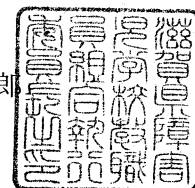 郎
滋賀県障害
児学校教職
員組合執行
委員長之印